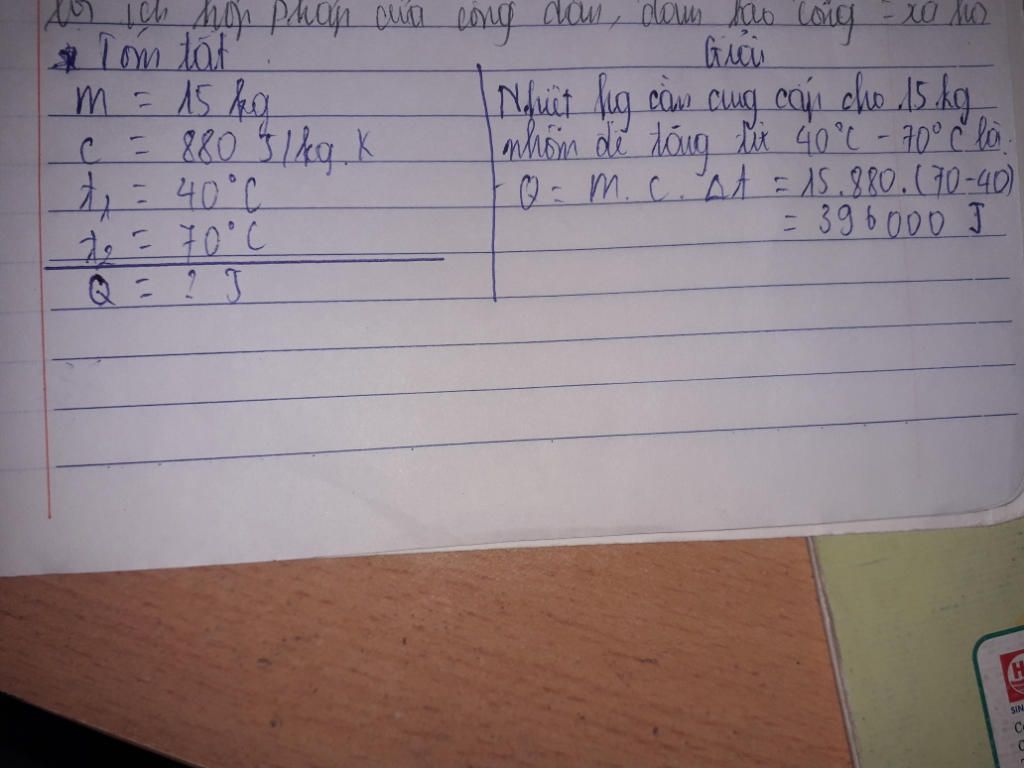 ích hợp pháp của công dân, đảm bảo công = xã hội
* Tóm tắt.
m = 15 kg
c = 880 J/kg.K
t₁ = 40°C
t₂ = 70°C
Q = ? J
Giải
Nhiệt lượng cần cung cấp cho 15 kg
nhôm để tăng từ 40°C - 70°C là:
Q = m. c. Δt = 15.880.(70-40)
= 396000 J
H
SIN